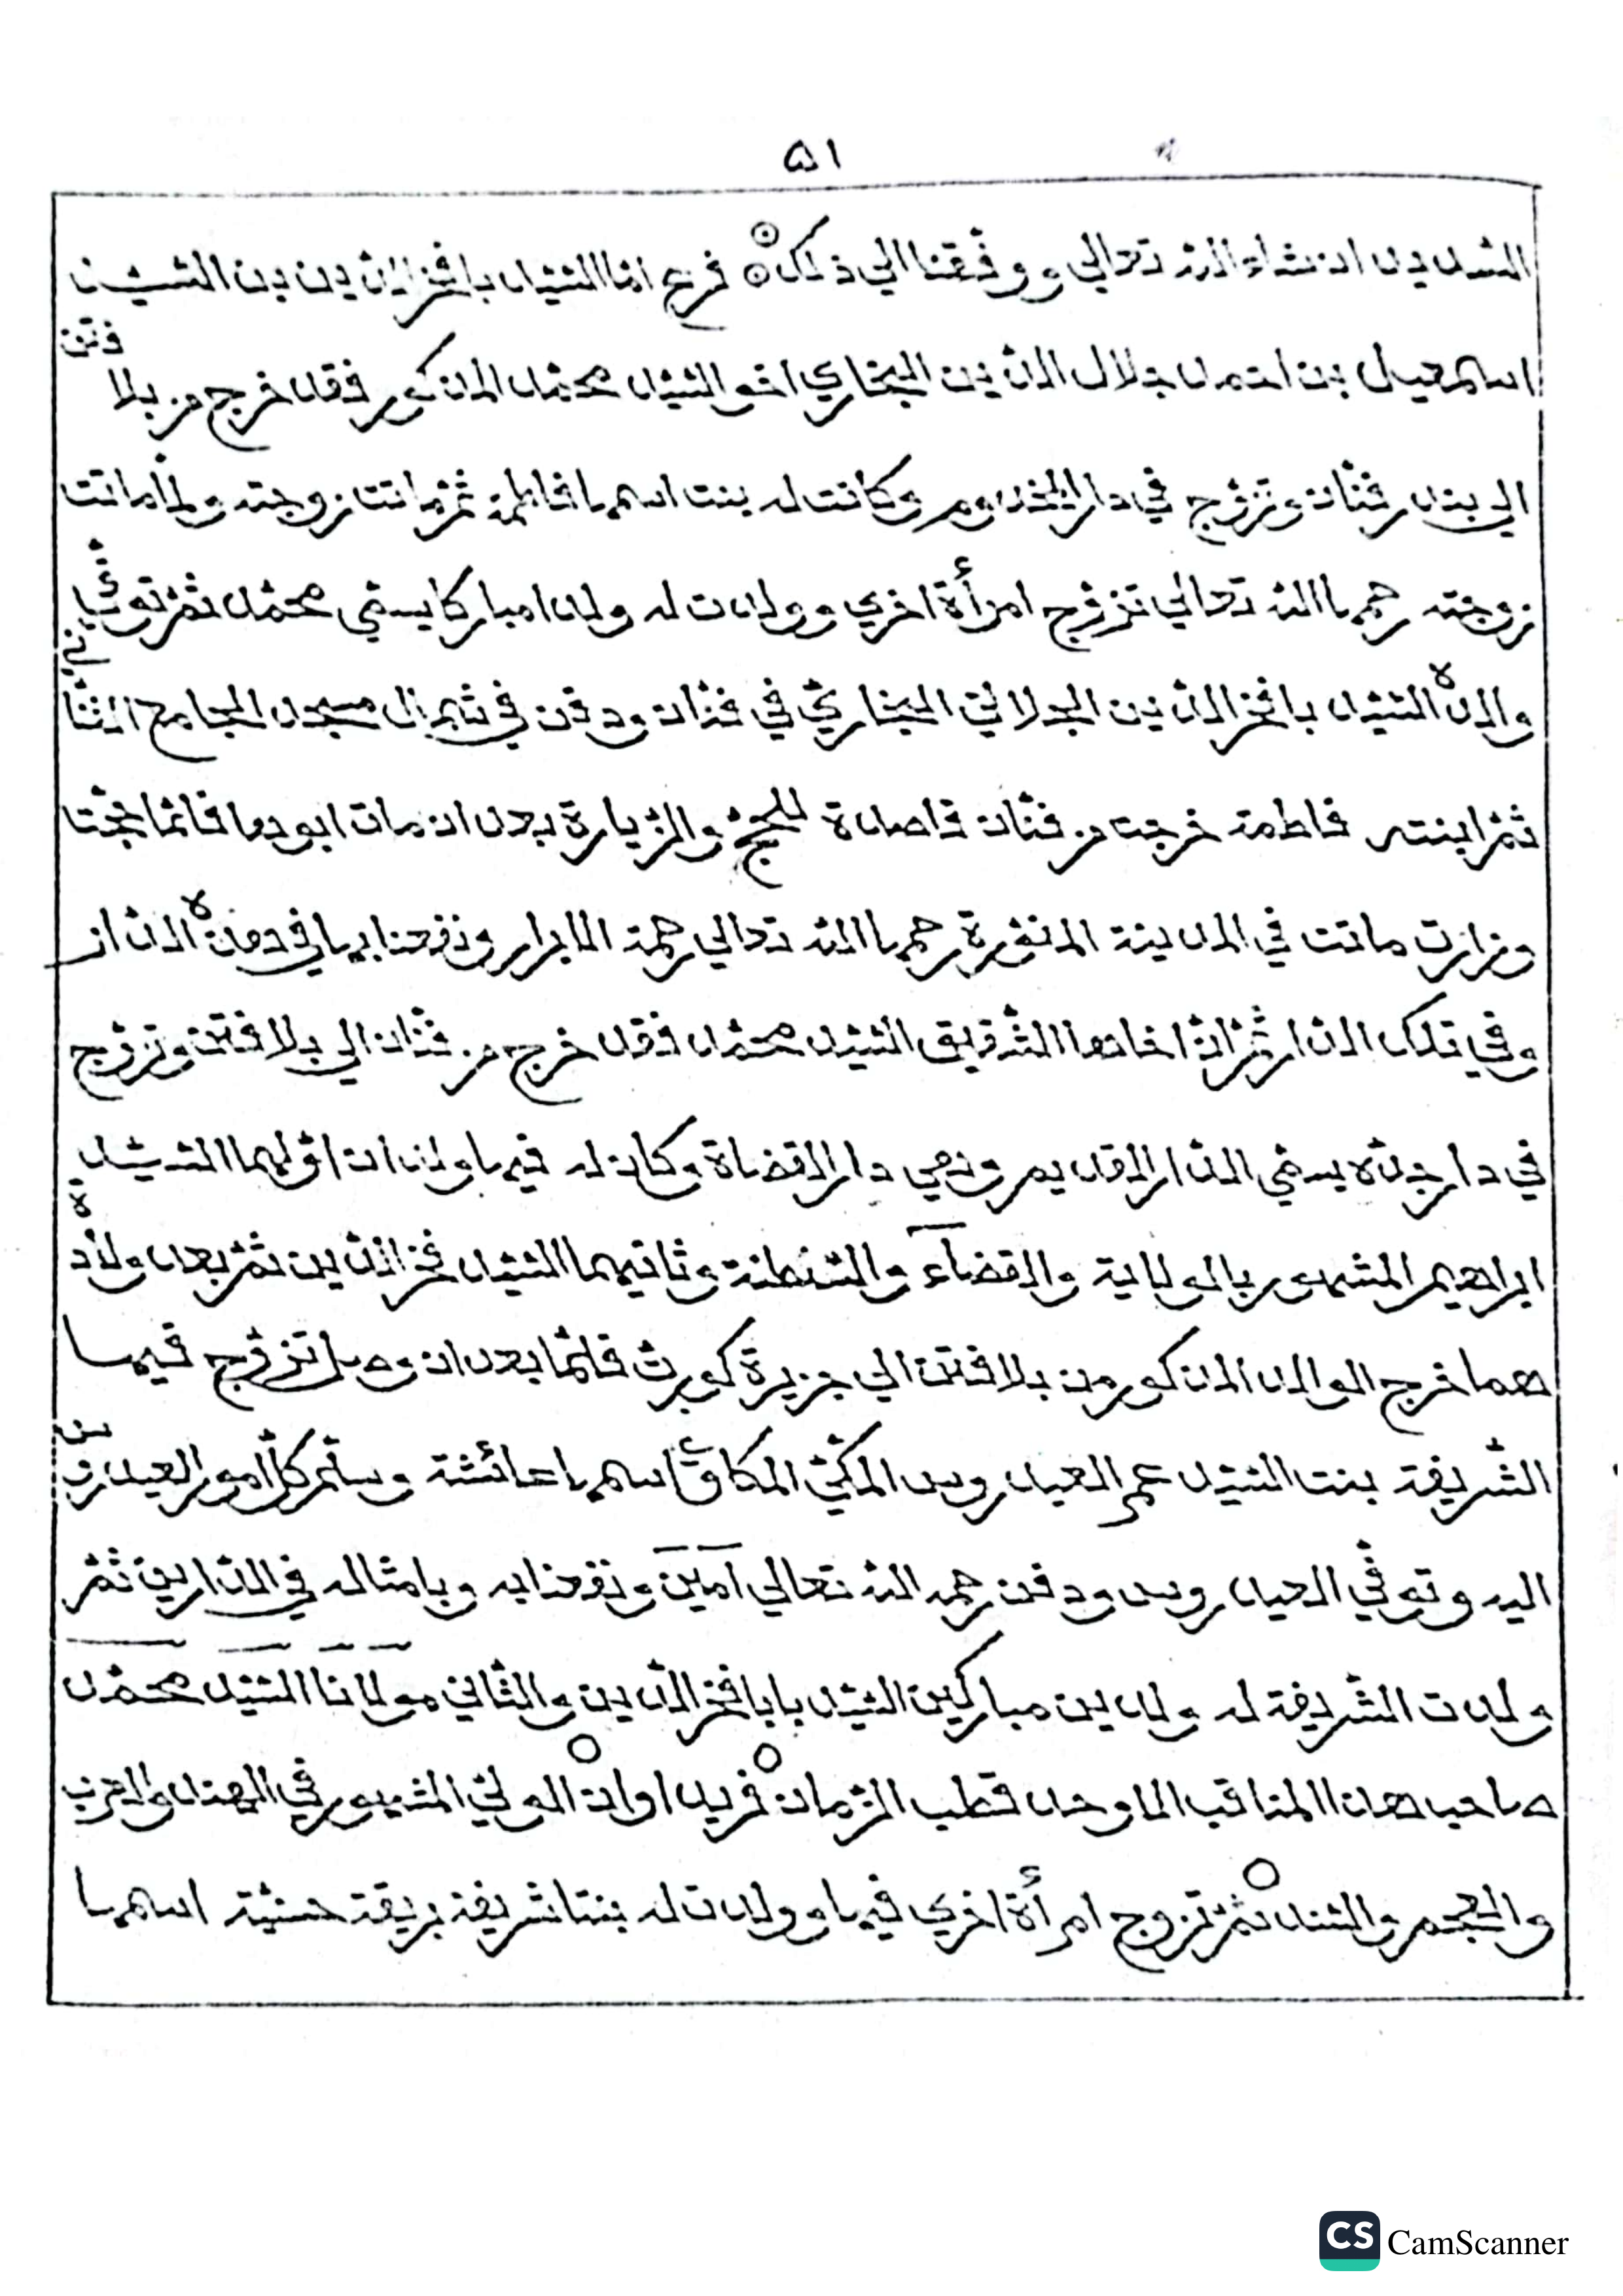 ٥١
السيد ان شاء الله تعالي ووفّقنا الي ذلك فرع امّا السّيّد بافخر الدّين بن السيّد
اسمعيل بن احمد جلال الدّين البخاري اخو السّيّد محمّد المذكور فقد خرج من بلافتن
الي بندر فنّان وتزوّج في دار المخدوم وكانت له بنت اسمها فاطمة ثمّ ماتت زوجته ولمّا ماتت
زوجته رحمها الله تعالي تزوّج امرأة اخري وولدت له ولدا مباركا يسمّي محمّد ثمّ توفّي
والده السّيّد بافخر الدّين الجلاليّ البخاريّ في فنّان ودفن في شمال مسجد الجامع الثّاني
ثمّ ابنته فاطمة خرجت من فنّان قاصدة للحجّ والزّيارة بعد ان مات ابوها فلمّا حجّت
وزارت ماتت في المدينة المنوّرة رحمها الله تعالي رحمة الابرار ونفعنا بها في هذه الدّار
وفي تلك الدّار ثمّ انّ اخاها الشّقيق السّيّد محمّد فقد خرج من فنّان الي بلافتن وتزوّج
في دار جدّه يسمّي الدّار القديم وهي دار القضاة وكان له فيها ولدان اوّلهما السّيّد
ابراهيم المشهور بالولاية والقضآء والسّلطنة وثانيهما السّيّد فخر الدّين ثمّ بعد ولادة
هما خرج الوالد المذكور من بلافتن الي جزيرة كويرث فلمّا بعد ان وصل تزوّج فيها
الشّريفة بنت السّيّد عمر العيدروس المكّيّ المكاوي اسمها عائشة وسلّم كلّ امور العيدروس
اليه وتوفّي العيدروس ودفن رحمه الله تعالي امين ونفعنا به وبامثاله في الدّارين ثمّ
ولدت الشّريفة له ولدين مباركين السّيّد بابا فخر الدّين والثّاني مولانا السّيّد محمّد
صاحب هذا المناقب الاوحد قطب الزّمان فريد اوان الوليّ المشهور في الهند والعرب
والعجم والسّند ثمّ تزوج امرأة اخري فيها وولدت له بنتا شريفة بريقة حسيّة اسمها
CS CamScanner